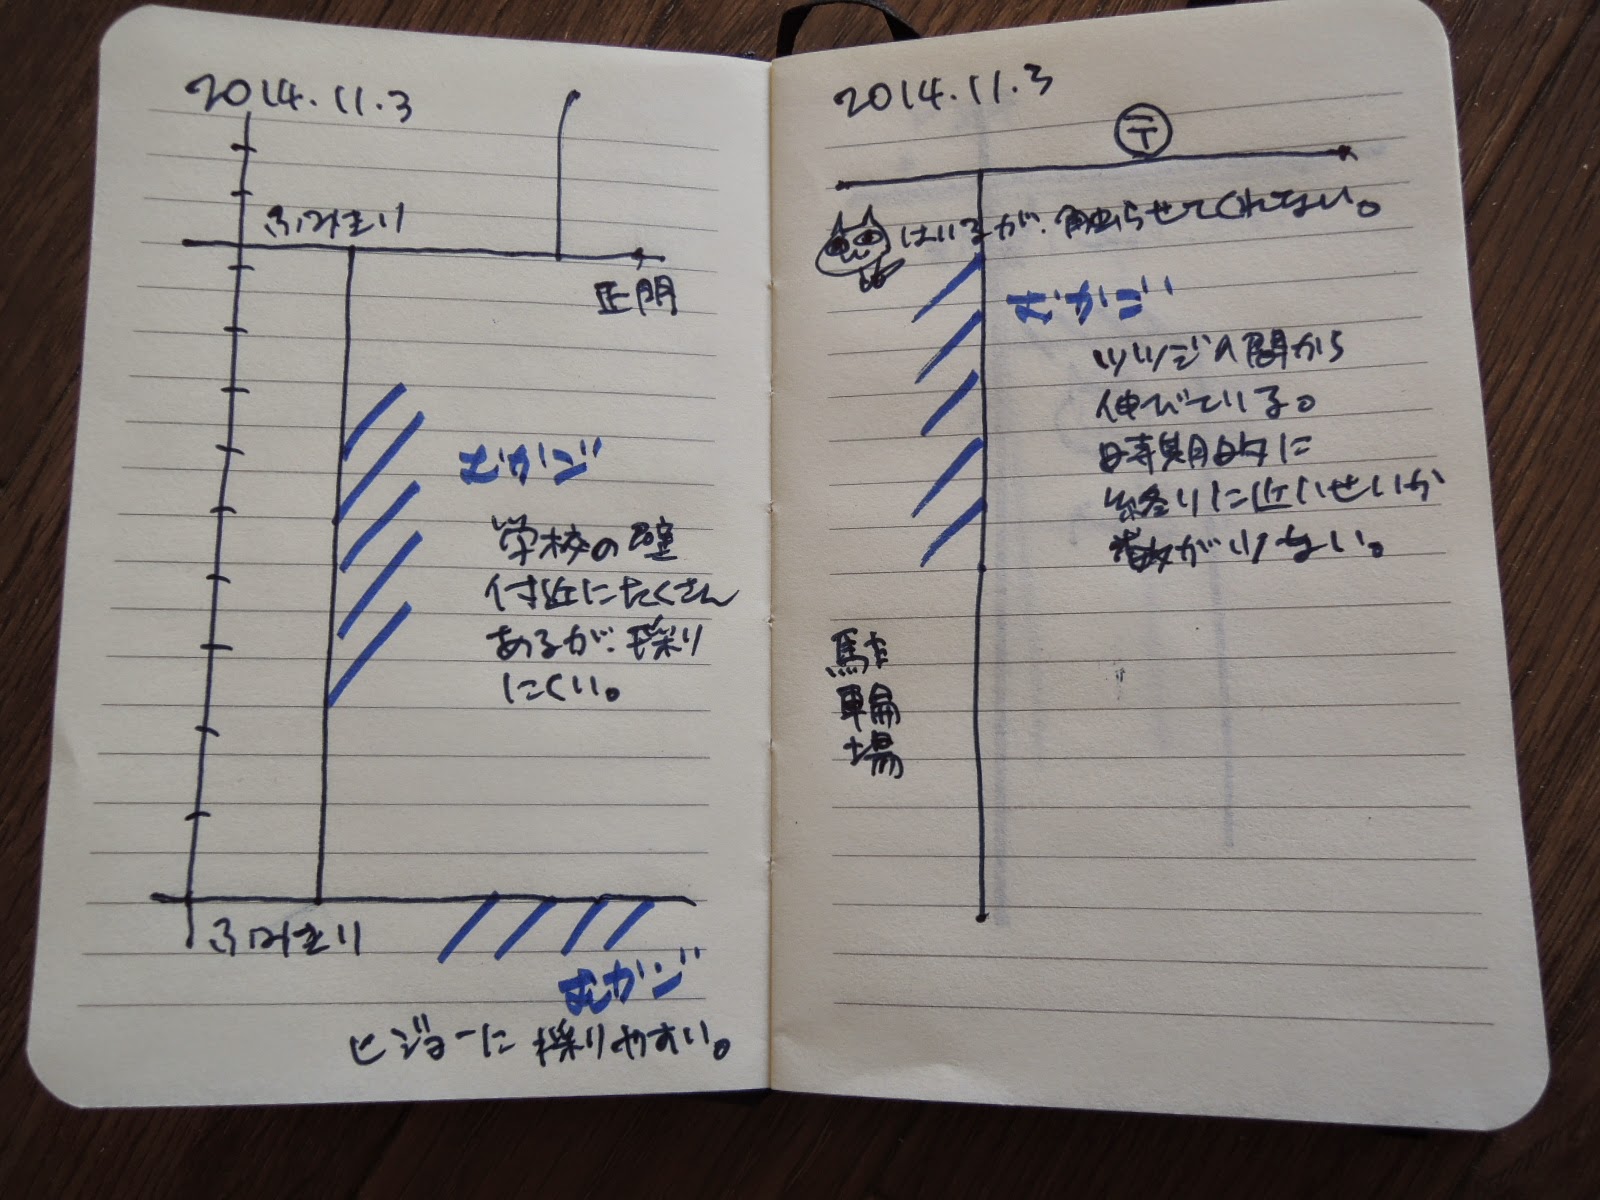 2014.11.3
ふみきり
正門
むかご
学校の壁
付近にたくさん
あるが、採り
にくい。
ふみきり
むかご
ヒジョーに採りやすい。
2014.11.3
〒
はいるが、触らせてくれない。
むかご
ツツジの間から
伸びている。
時期的に
終りに近いせいか
数が少ない。
駐
車輪
場